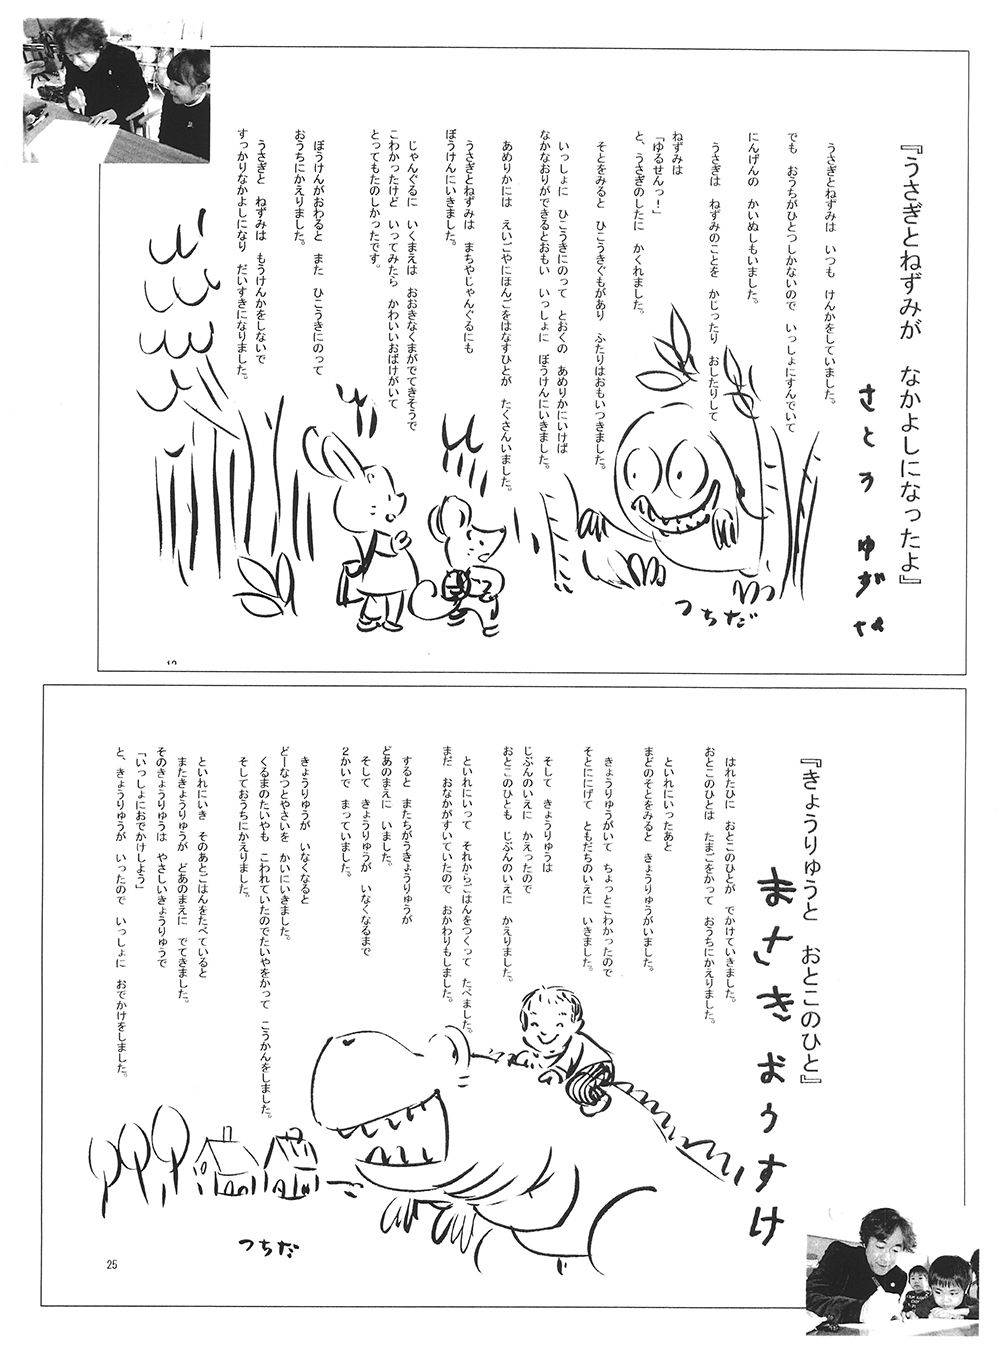 『うさぎとねずみが　なかよしになったよ』
さとう　ゆずな
うさぎとねずみは　いつも　けんかをしていました。
でも　おうちがひとつしかないので　いっしょにすんでいて
にんげんの　かいぬしもいました。
うさぎは　ねずみのことを　かじったり　おしたりして
ねずみは
「ゆるせんっ！」
と、うさぎのしたに　かくれました。
そとをみると　ひこうきぐもがあり　ふたりはおもいつきました。
いっしょに　ひこうきにのって　とおくの　あめりかにいけば
なかなおりができるとおもい　いっしょに　ぼうけんにいきました。
あめりかには　えいごやにほんごをはなすひとが　たくさんいました。
うさぎとねずみは　まちやじゃんぐるにも
ぼうけんにいきました。
じゃんぐるに　いくまえは　おおきなくまがでてきそうで
こわかったけど　いってみたら　かわいいおばけがいて
とってもたのしかったです。
ぼうけんがおわると　また　ひこうきにのって
おうちにかえりました。
うさぎと　ねずみは　もうけんかをしないで
すっかりなかよしになり　だいすきになりました。
つちだ
『きょうりゅうと　おとこのひと』
まさき　おうすけ
はれたひに　おとこのひとが　でかけていきました。
おとこのひとは　たまごをかって　おうちにかえりました。
といれにいったあと
まどのそとをみると　きょうりゅうがいました。
きょうりゅうがいて　ちょっとこわかったので
そとににげて　ともだちのいえに　いきました。
そして　きょうりゅうは
じぶんのいえに　かえったので
おとこのひとも　じぶんのいえに　かえりました。
といれにいって　それからごはんをつくって　たべました。
まだ　おなかがすいていたので　おかわりもしました。
すると　またちがうきょうりゅうが
どあのまえに　いました。
そして　きょうりゅうが　いなくなるまで
２かいで　まっていました。
きょうりゅうが　いなくなると
どーなつとやさいを　かいにいきました。
くるまのたいやも　こわれていたのでたいやをかって　こうかんをしました。
そしておうちにかえりました。
といれにいき　そのあとごはんをたべていると
またきょうりゅうが　どあのまえに　でてきました。
そのきょうりゅうは　やさしいきょうりゅうで
「いっしょにおでかけしよう」
と、きょうりゅうが　いったので　いっしょに　おでかけをしました。
つちだ
25